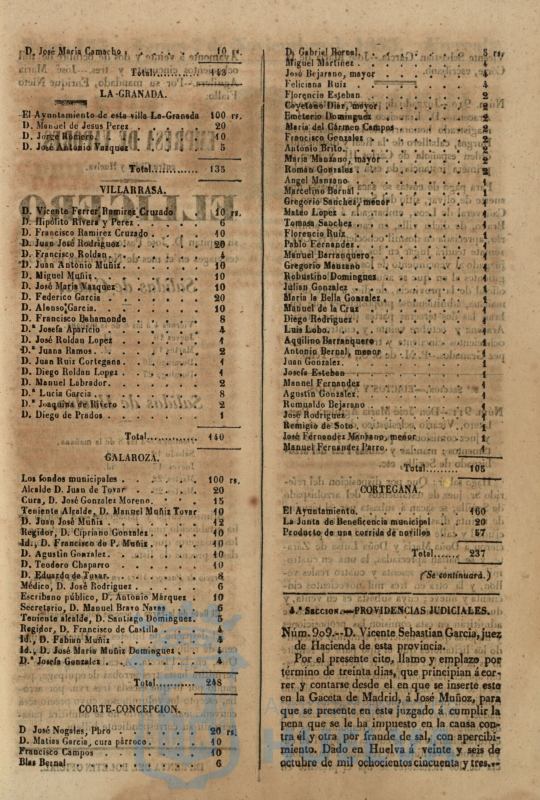 D. José Maria Camacho . . . . . 10 rs.
Total............... 143
LA-GRANADA.
El Ayuntamiento de esta villa La-Granada 100 rs.
D. Manuel de Jesus Perez . . . . . 20
D. Jorge Romero. . . . . . . 10
D. José Antonio Vazquez . . . . . 5
Total............... 135
VILLARRASA.
D. Vicente Ferrer Ramirez Cruzado 10 rs.
D. Hipólito Rivera y Perez . . . . 6
D. Francisco Ramirez Cruzado . . . . 10
D. Juan José Rodriguez . . . . . 20
D. Francisco Roldan . . . . . . 4
D. Juan Antonio Muñiz . . . . . 10
D. Miguel Muñiz . . . . . . . 10
D. José Maria Vazquez . . . . . 10
D. Federico Garcia . . . . . . 20
D. Alonso Garcia. . . . . . . 10
D. Francisco Bahamonde . . . . . 8
D.ª Josefa Aparicio . . . . . . 4
D. José Roldan Lopez . . . . . 1
D.ª Juana Ramos . . . . . . . 2
D. Juan Ruiz Cortegana . . . . . 1
D. Diego Roldan Lopez . . . . . 1
D. Manuel Labrador. . . . . . 2
D.ª Lucia Garcia . . . . . . . 8
D.ª Joaquina de Rivero . . . . . 2
D. Diego de Prados . . . . . . 1
Total............... 140
GALAROZA.
Los fondos municipales . . . . . 100 rs.
Alcalde D. Juan de Tovar . . . . 20
Cura, D. José Gonzalez Moreno. . . . 15
Teniente Alcalde, D. Manuel Muñiz Tovar 10
D. Juan José Muñiz . . . . . . 12
Regidor, D. Cipriano Gonzalez . . . . 10
Id., D. Francisco de P. Muñiz . . . . 10
D. Agustin Gonzalez . . . . . . 10
D. Teodoro Chaparro . . . . . . 10
D. Eduardo de Tovar. . . . . . 8
Médico, D. José Rodriguez . . . . 6
Escribano público, D. Antonio Márquez . 10
Secretario, D. Manuel Bravo Nava . . 6
Teniente alcalde, D. Santiago Dominguez. 5
Regidor, D. Francisco de Castilla . . . 4
Id., D. Fabian Muñiz . . . . . 4
Id., D. José Maria Muñiz Dominguez . . 4
D.ª Josefa Gonzalez . . . . . . 4
Total............... 248
CORTE-CONCEPCION.
D José Nogales, Pbro . . . . . 20 rs.
D. Matias Garcia, cura párroco . . . . 10
Francisco Campos . . . . . . 10
Blas Bernal . . . . . . . . 6
D. Gabriel Bornal. . . . . . . 8 rs.
Miguel Martinez . . . . . . . 4
José Bejarano, mayor . . . . . 4
Feliciana Ruiz . . . . . . . 4
Florencio Esteban . . . . . . 2
Cayetano Diaz, mayor . . . . . 2
Emeterio Dominguez . . . . . . 2
Maria del Cármen Campos . . . . 2
Francisco Gonzalez . . . . . . 2
Antonio Brito. . . . . . . . 2
Maria Manzano, mayor . . . . . 2
Roman Gonzalez . . . . . . . 2
Angel Manzano . . . . . . . 1
Marcelino Bernal . . . . . . . 1
Gregorio Sanchez, menor . . . . . 1
Mateo Lopez . . . . . . . . 1
Tomasa Sanchez . . . . . . . 1
Florencio Ruiz . . . . . . . 1
Pablo Fernandez . . . . . . . 1
Manuel Barranquero. . . . . . 1
Gregorio Manzano . . . . . . 1
Robustino Dominguez . . . . . 1
Julian Gonzalez . . . . . . . 1
Maria la Bella Gonzalez . . . . . 1
Manuel de la Cruz . . . . . . 1
Diego Rodriguez . . . . . . . 1
Luis Lobo. . . . . . . . . 1
Aquilino Barranquero . . . . . . 1
Antonio Bernal, menor . . . . . 1
Juan Gonzalez . . . . . . . 1
Josefa Esteban . . . . . . . 1
Manuel Fernandez . . . . . . 1
Agustin Gonzalez. . . . . . . 1
Romualdo Bejarano . . . . . . 1
José Rodriguez . . . . . . . 1
Remigio de Soto . . . . . . . 1
José Fernandez Manzano, menor . . . 1
Manuel Fernandez Parro. . . . . 1
Total............... 105
CORTEGANA.
El Ayuntamiento. . . . . . . 160
La Junta de Beneficencia municipal . . 20
Producto de una corrida de novillos . . 57
Total............... 237
(Se continuará.)
4.ª Seccion.—PROVIDENCIAS JUDICIALES.
Núm. 909.--D. Vicente Sebastian Garcia, juez
de Hacienda de esta provincia.
Por el presente cito, llamo y emplazo por
término de treinta dias, que principian á cor-
rer y contarse desde el en que se inserte esto
en la Gaceta de Madrid, á José Muñoz, para
que se presente en este juzgado á cumplir la
pena que se le ha impuesto en la causa con-
tra él y otra por fraude de sal, con apercibi-
miento. Dado en Huelva á veinte y seis de
octubre de mil ochocientos cincuenta y tres.--